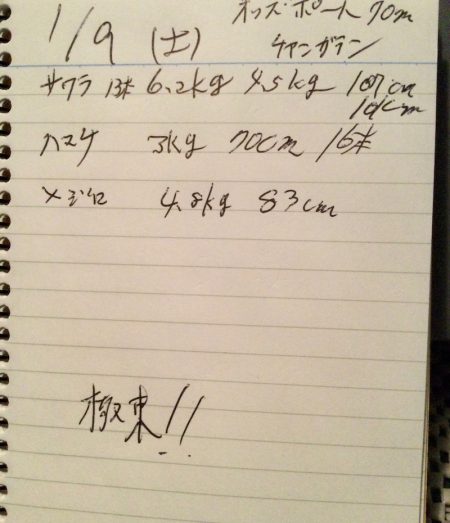 1/9 (土) オッズ・ポート 70m
サワラ 13本 6.2kg 4.5kg 107cm
101cm
ハマチ 3kg 70cm 16本
メジロ 4.8kg 83cm
極束!!